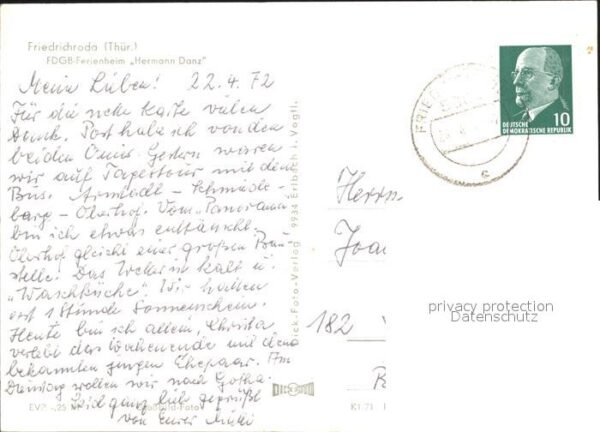 Friedrichroda (Thür.)
FDGB-Ferienheim „Hermann Danz"
Meine Lieben! 22.4.72
Für die nette Karte vielen
Dank. Post habe ich von den
beiden Omis. Gestern waren
wir auf Tagestour mit dem
Bus. Arnstadt – Schmiede-
– Oberhof. Vom „Panorama"
bin ich etwas enttäuscht.
Oberhof gleicht einer großen Bau-
stelle! Das Wetter ist kalt u.
„Waschküche". Wir hatten
erst 1 Stunde Sonnenschein.
Heute bin ich allein, Christa
verlebt das Wochenende mit dem
bekannten jungen Ehepaar. Am
Dienstag wollen wir nach Gotha.
Seid ganz lieb gegrüßt
von Eurer
EV7 -,25
K1/71
Bick-Foto-Verlag 9934 Erlbach i. Vogtl.
BICK FOTO
FRIED
10
DEUTSCHE
DEMOKRATISCHE REPUBLIK
c
Herrn
Joa
182
privacy protection
Datenschutz